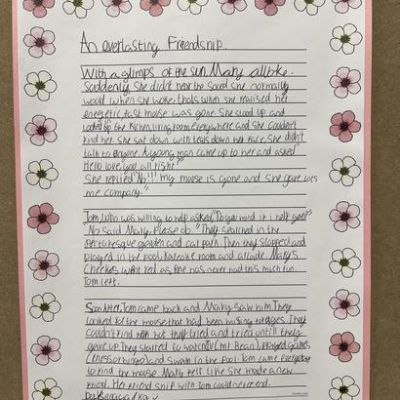 An everlasting Friendship.
With a glimps of the sun Mary allbke.
Suddenly, She didnt hear the Sound She normally
would when she woke. thats when She realised her
energetic, fast mouse was gone. She stood up and
looked up the kichen, living room, everywhere and She Couldn't
find her. She sat down with tears down her face. She didn't
talk to anyone. A young man came up to her and asked
Hello love, you all right"
She replied "No!!! my mouse is gone and She gave
me company."
Tom, who was willing to help asked, "Do you mind if i
No said Mary, Please do." They searched in the
garden and cat path. Then they stopped and
played in the pool, Kareoke room and arcade. Mary's
Cheekes were red as fire has never had this much fun.
Tom left.
Soon after, Tom came back and Mary saw him. They
looked for the mouse that had been making
couldn't find him but they tried and tried until they
gave up. They started to watch (Mr Bean), played games
and swam in the pool. Tom came everyday
to find the mouse. Mary felt like She made a new
friend. Her friendship with Tom could never end.